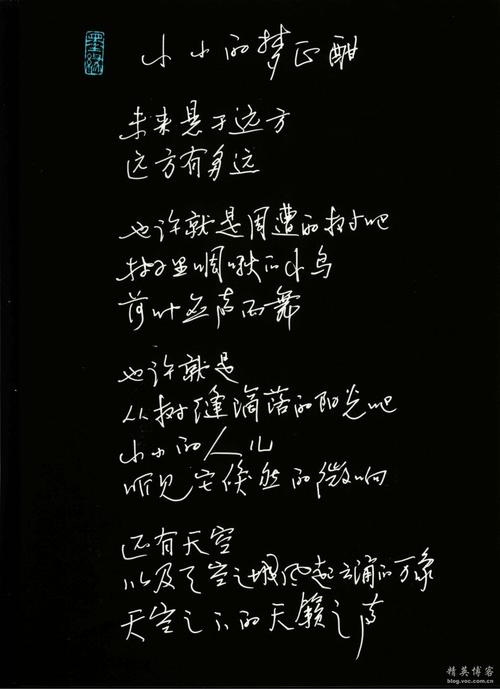 小小的梦正酣
未来悬于远方
远方有多远
也许就是周遭的树吧
树里啁啾的小鸟
荷叶应声而舞
也许就是
从树缝滴落的阳光吧
小小的人儿
听见它倏然的微响
还有天空
以及天空之城风起云涌的万象
天空之下的天籁之声
精英博客
blog.voc.com.cn